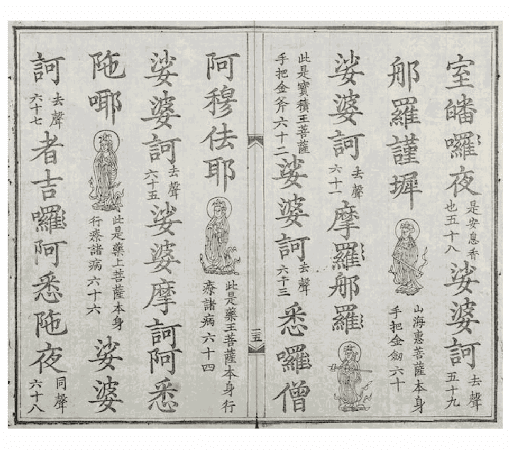 室皤囉夜是安息香也五十八娑婆訶去聲五十九
郍羅謹墀山海惠菩薩本身手把金劒六十
娑婆訶去聲六十一摩羅郍羅
此是寶積王菩薩手把金斧六十二娑婆訶去聲六十三悉囉僧
阿穆佉耶此是藥王菩薩本身行療諸病六十四
娑婆訶去聲六十五娑婆摩訶阿悉
陁㖿此是藥上菩薩本身行療諸病六十六娑婆
訶去聲六十七者吉囉阿悉陁夜同聲六十八